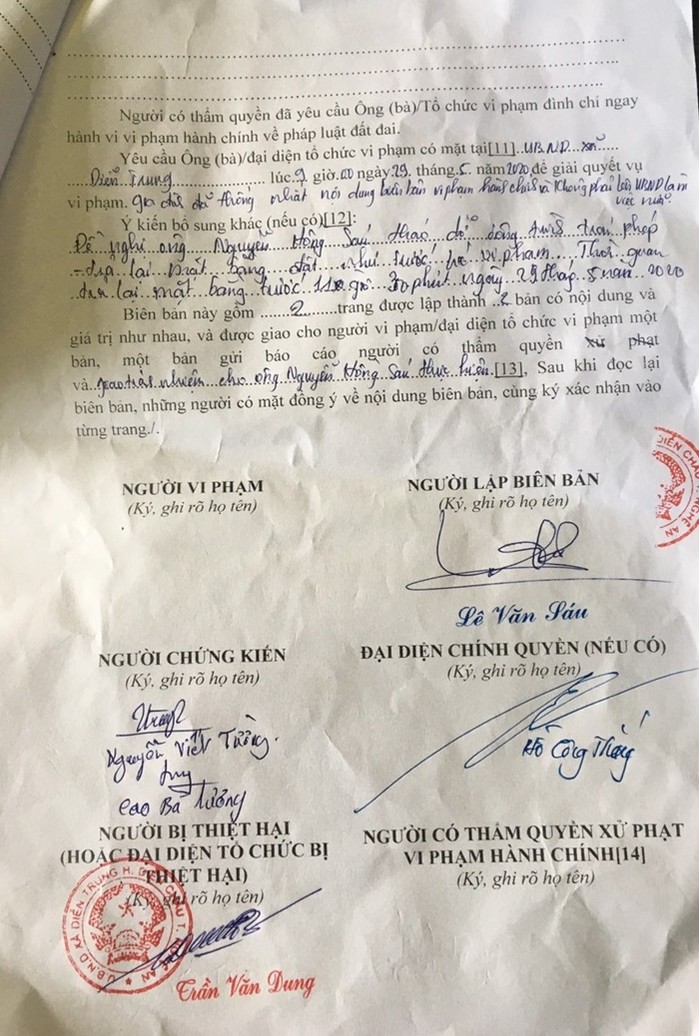 Người có thẩm quyền đã yêu cầu Ông (bà)/Tổ chức vi phạm đình chỉ ngay
hành vi vi phạm hành chính về pháp luật đất đai.
Yêu cầu Ông (bà)/đại diện tổ chức vi phạm có mặt tại[11]..UB.ND...xã.....
....Diễn Trung.................. lúc.9. giờ.00 ngày.29. tháng.5.. năm.2020.để giải quyết vụ
vi phạm. gia đình đã thống nhất nội dung biên bản vi phạm hành chính và không phải lên UBND làm
việc nữa
Ý kiến bổ sung khác (nếu có)[12]:
Đề nghị ông Nguyễn Hồng Sáu tháo dỡ trái phép
lại mặt bằng đất như trước vi phạm. Thời gian
lại mặt bằng trước giờ 30 phút ngày 29 thág 5 năm 2020
Biên bản này gồm .......2.......trang được lập thành ..2.. bản có nội dung và
giá trị như nhau, và được giao cho người vi phạm/đại diện tổ chức vi phạm một
bản, một bản gửi báo cáo người có thẩm quyền xử phạt
và..giao trách nhiệm cho ông Nguyễn Hồng Sáu thực hiện.[13]. Sau khi đọc lại
biên bản, những người có mặt đồng ý về nội dung biên bản, cùng ký xác nhận vào
từng trang./.
NGƯỜI VI PHẠM
(Ký, ghi rõ họ tên)
NGƯỜI LẬP BIÊN BẢN
(Ký, ghi rõ họ tên)
Lê Văn Sáu
NGƯỜI CHỨNG KIẾN
(Ký, ghi rõ họ tên)
Nguyễn Viết Tường.
Cao Bá Tường
ĐẠI DIỆN CHÍNH QUYỀN (NẾU CÓ)
(Ký, ghi rõ họ tên)
Hồ Công Thắng
NGƯỜI BỊ THIỆT HẠI
(HOẶC ĐẠI DIỆN TỔ CHỨC BỊ
THIỆT HẠI)
(Ký, ghi rõ họ tên)
Trần Văn Dung
NGƯỜI CÓ THẨM QUYỀN XỬ PHẠT
VI PHẠM HÀNH CHÍNH[14]
(Ký, ghi rõ họ tên)